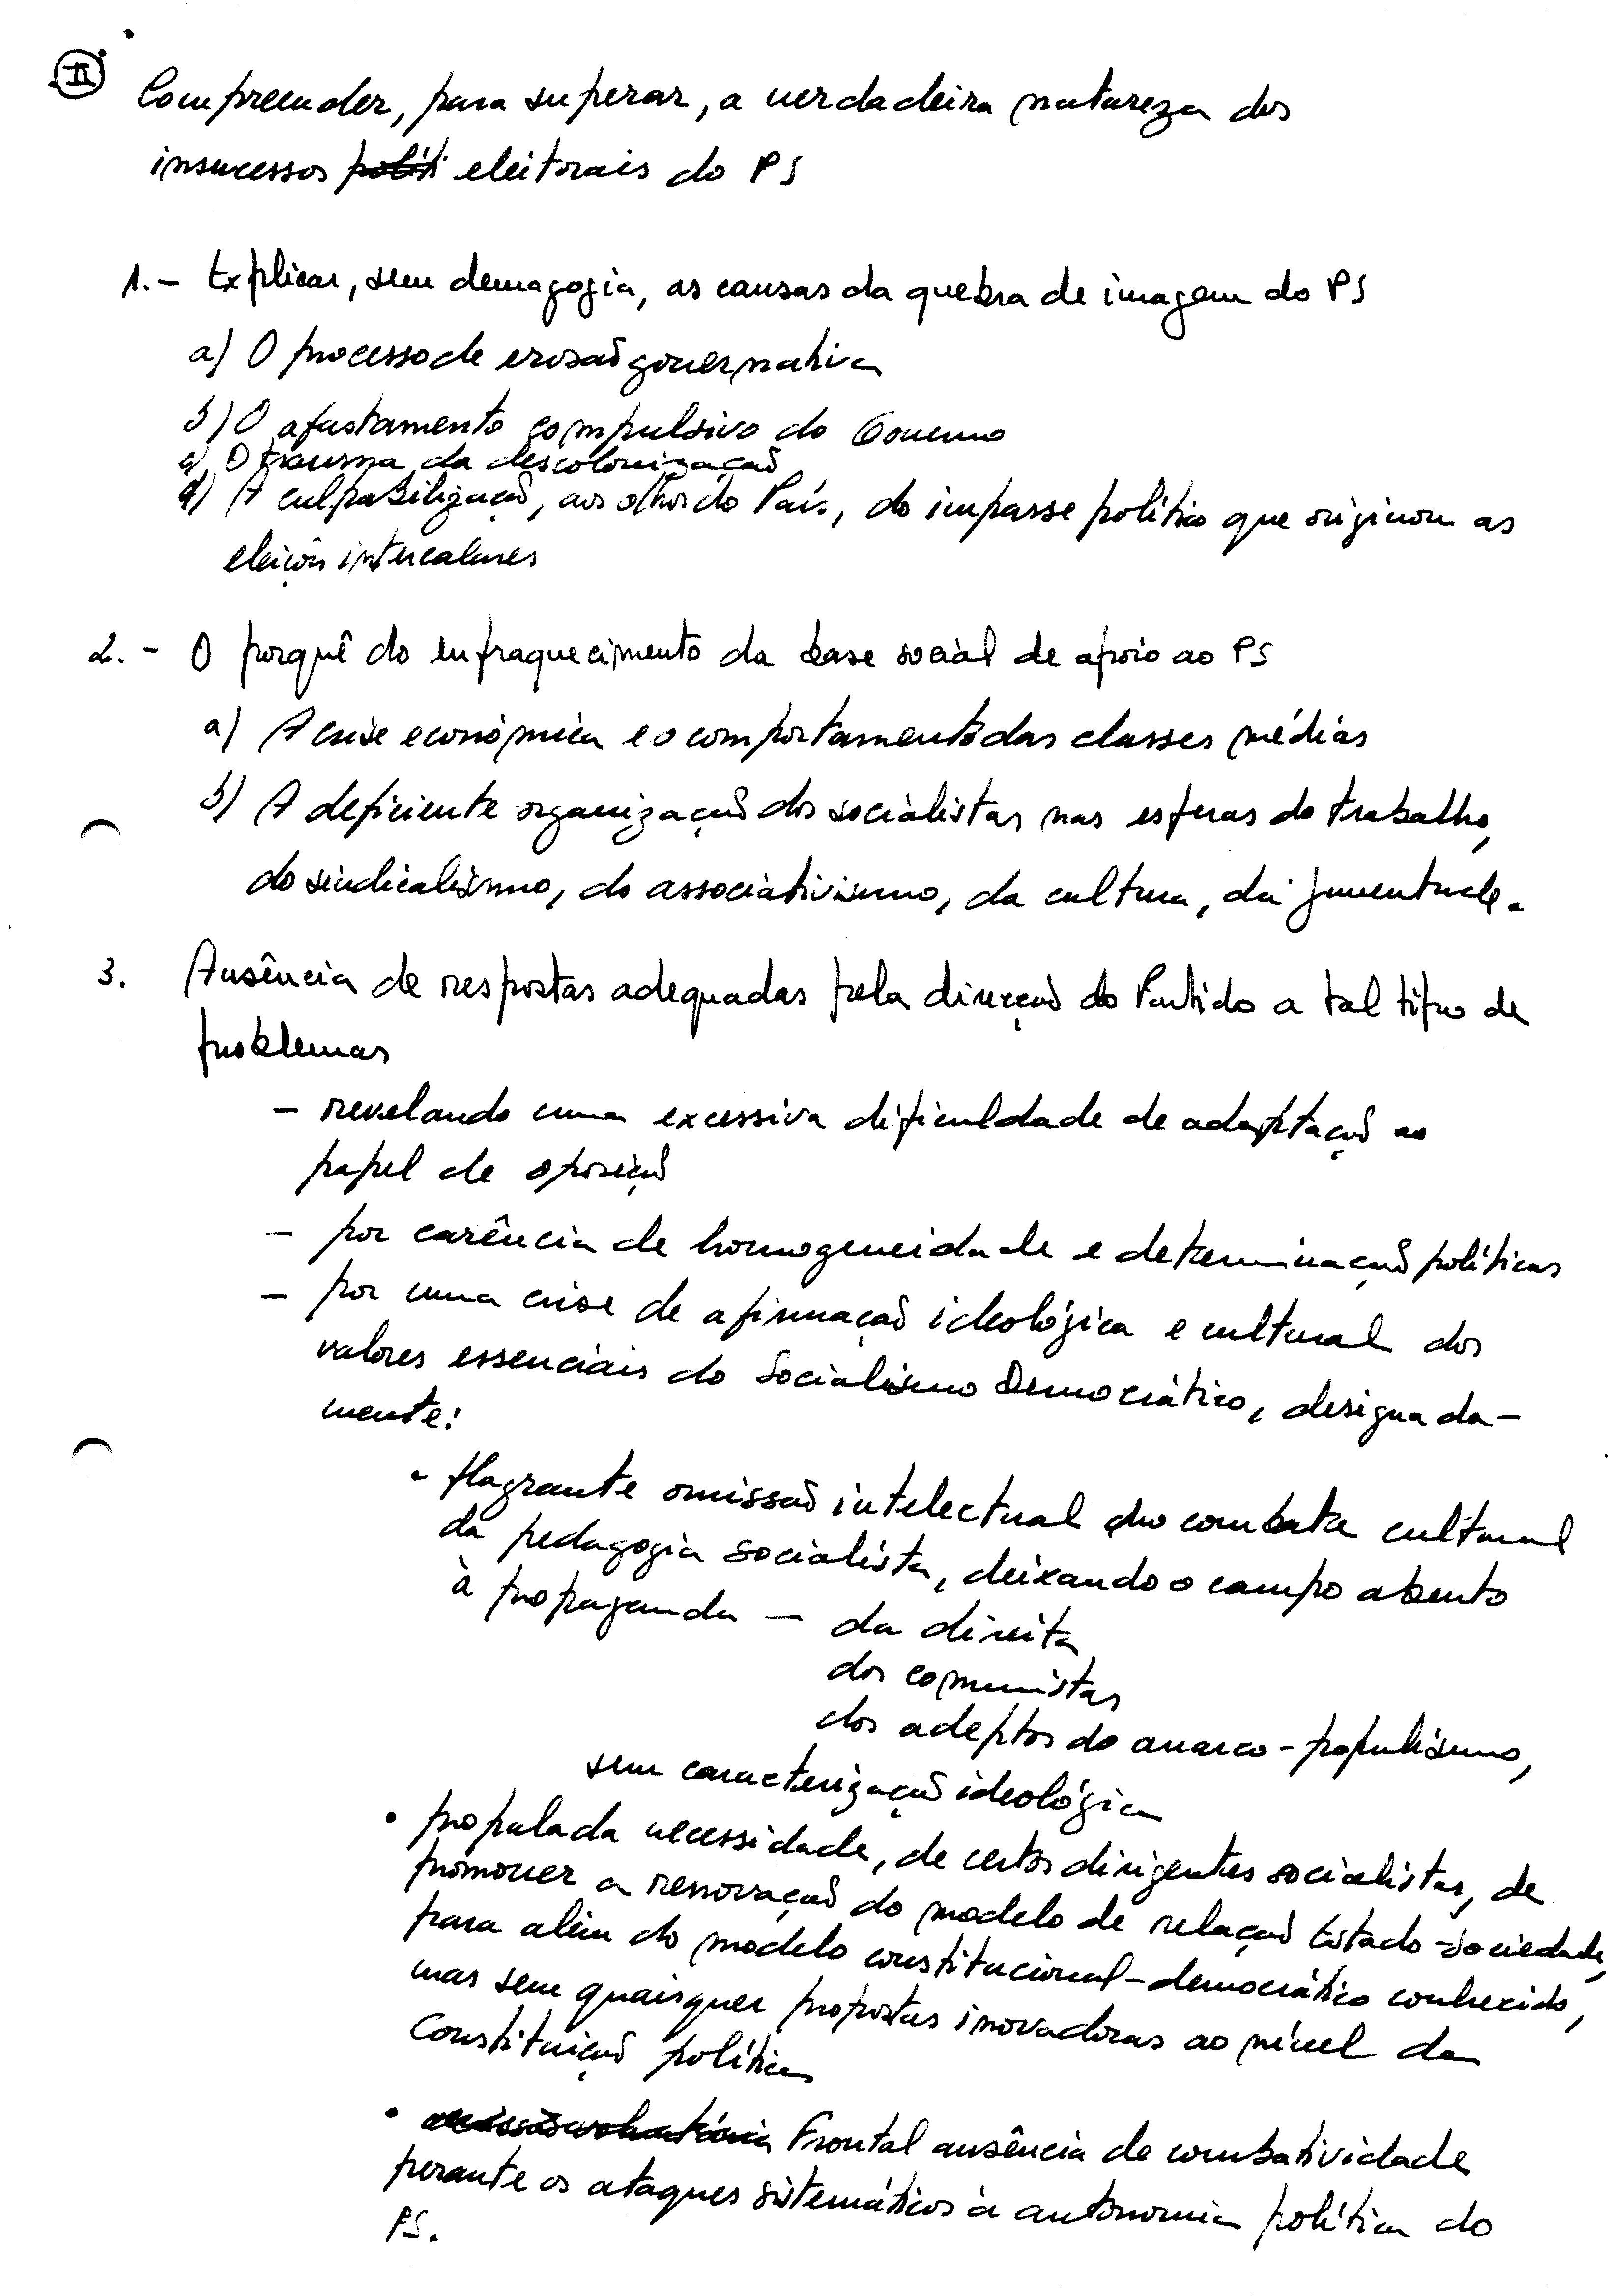 II
Compreender, para superar, a verdadeira natureza dos
insucessos políti eleitorais do PS
1. - Explicar, sem demagogia, as causas da quebra de imagem do PS
a) O processo de erosão governativa
b) O afastamento compulsivo do Governo
c) O trauma da descolonização
d) A culpabilização, aos olhos do País, do impasse político que originou as
eleições intercalares
2. - O porquê do enfraquecimento da base social de apoio ao PS
a) A crise económica e o comportamento das classes médias
b) A deficiente organização dos socialistas nas esferas do trabalho,
do sindicalismo, do associativismo, da cultura, da juventude.
3. Ausência de respostas adequadas pela direcção do Partido a tal tipo de
problemas
- revelando uma excessiva dificuldade de adaptação ao
papel de oposição
- por carência de homogeneidade e determinação políticas
- por uma crise de afirmação ideológica e cultural dos
valores essenciais do Socialismo Democrático, designada-
mente:
• flagrante omissão intelectual do combate cultural
da pedagogia socialista, deixando o campo aberto
à propaganda - da direita
dos comunistas
dos adeptos do anarco-populismo,
sem caracterização ideológica
• propalada necessidade, de certos dirigentes socialistas, de
promover a renovação do modelo de relação Estado-sociedade,
para além do modelo constitucional-democrático conhecido,
mas sem quaisquer propostas inovadoras ao nível da
Constituição política
• Frontal ausência de combatividade
perante os ataques sistemáticos à autonomia política do
PS.